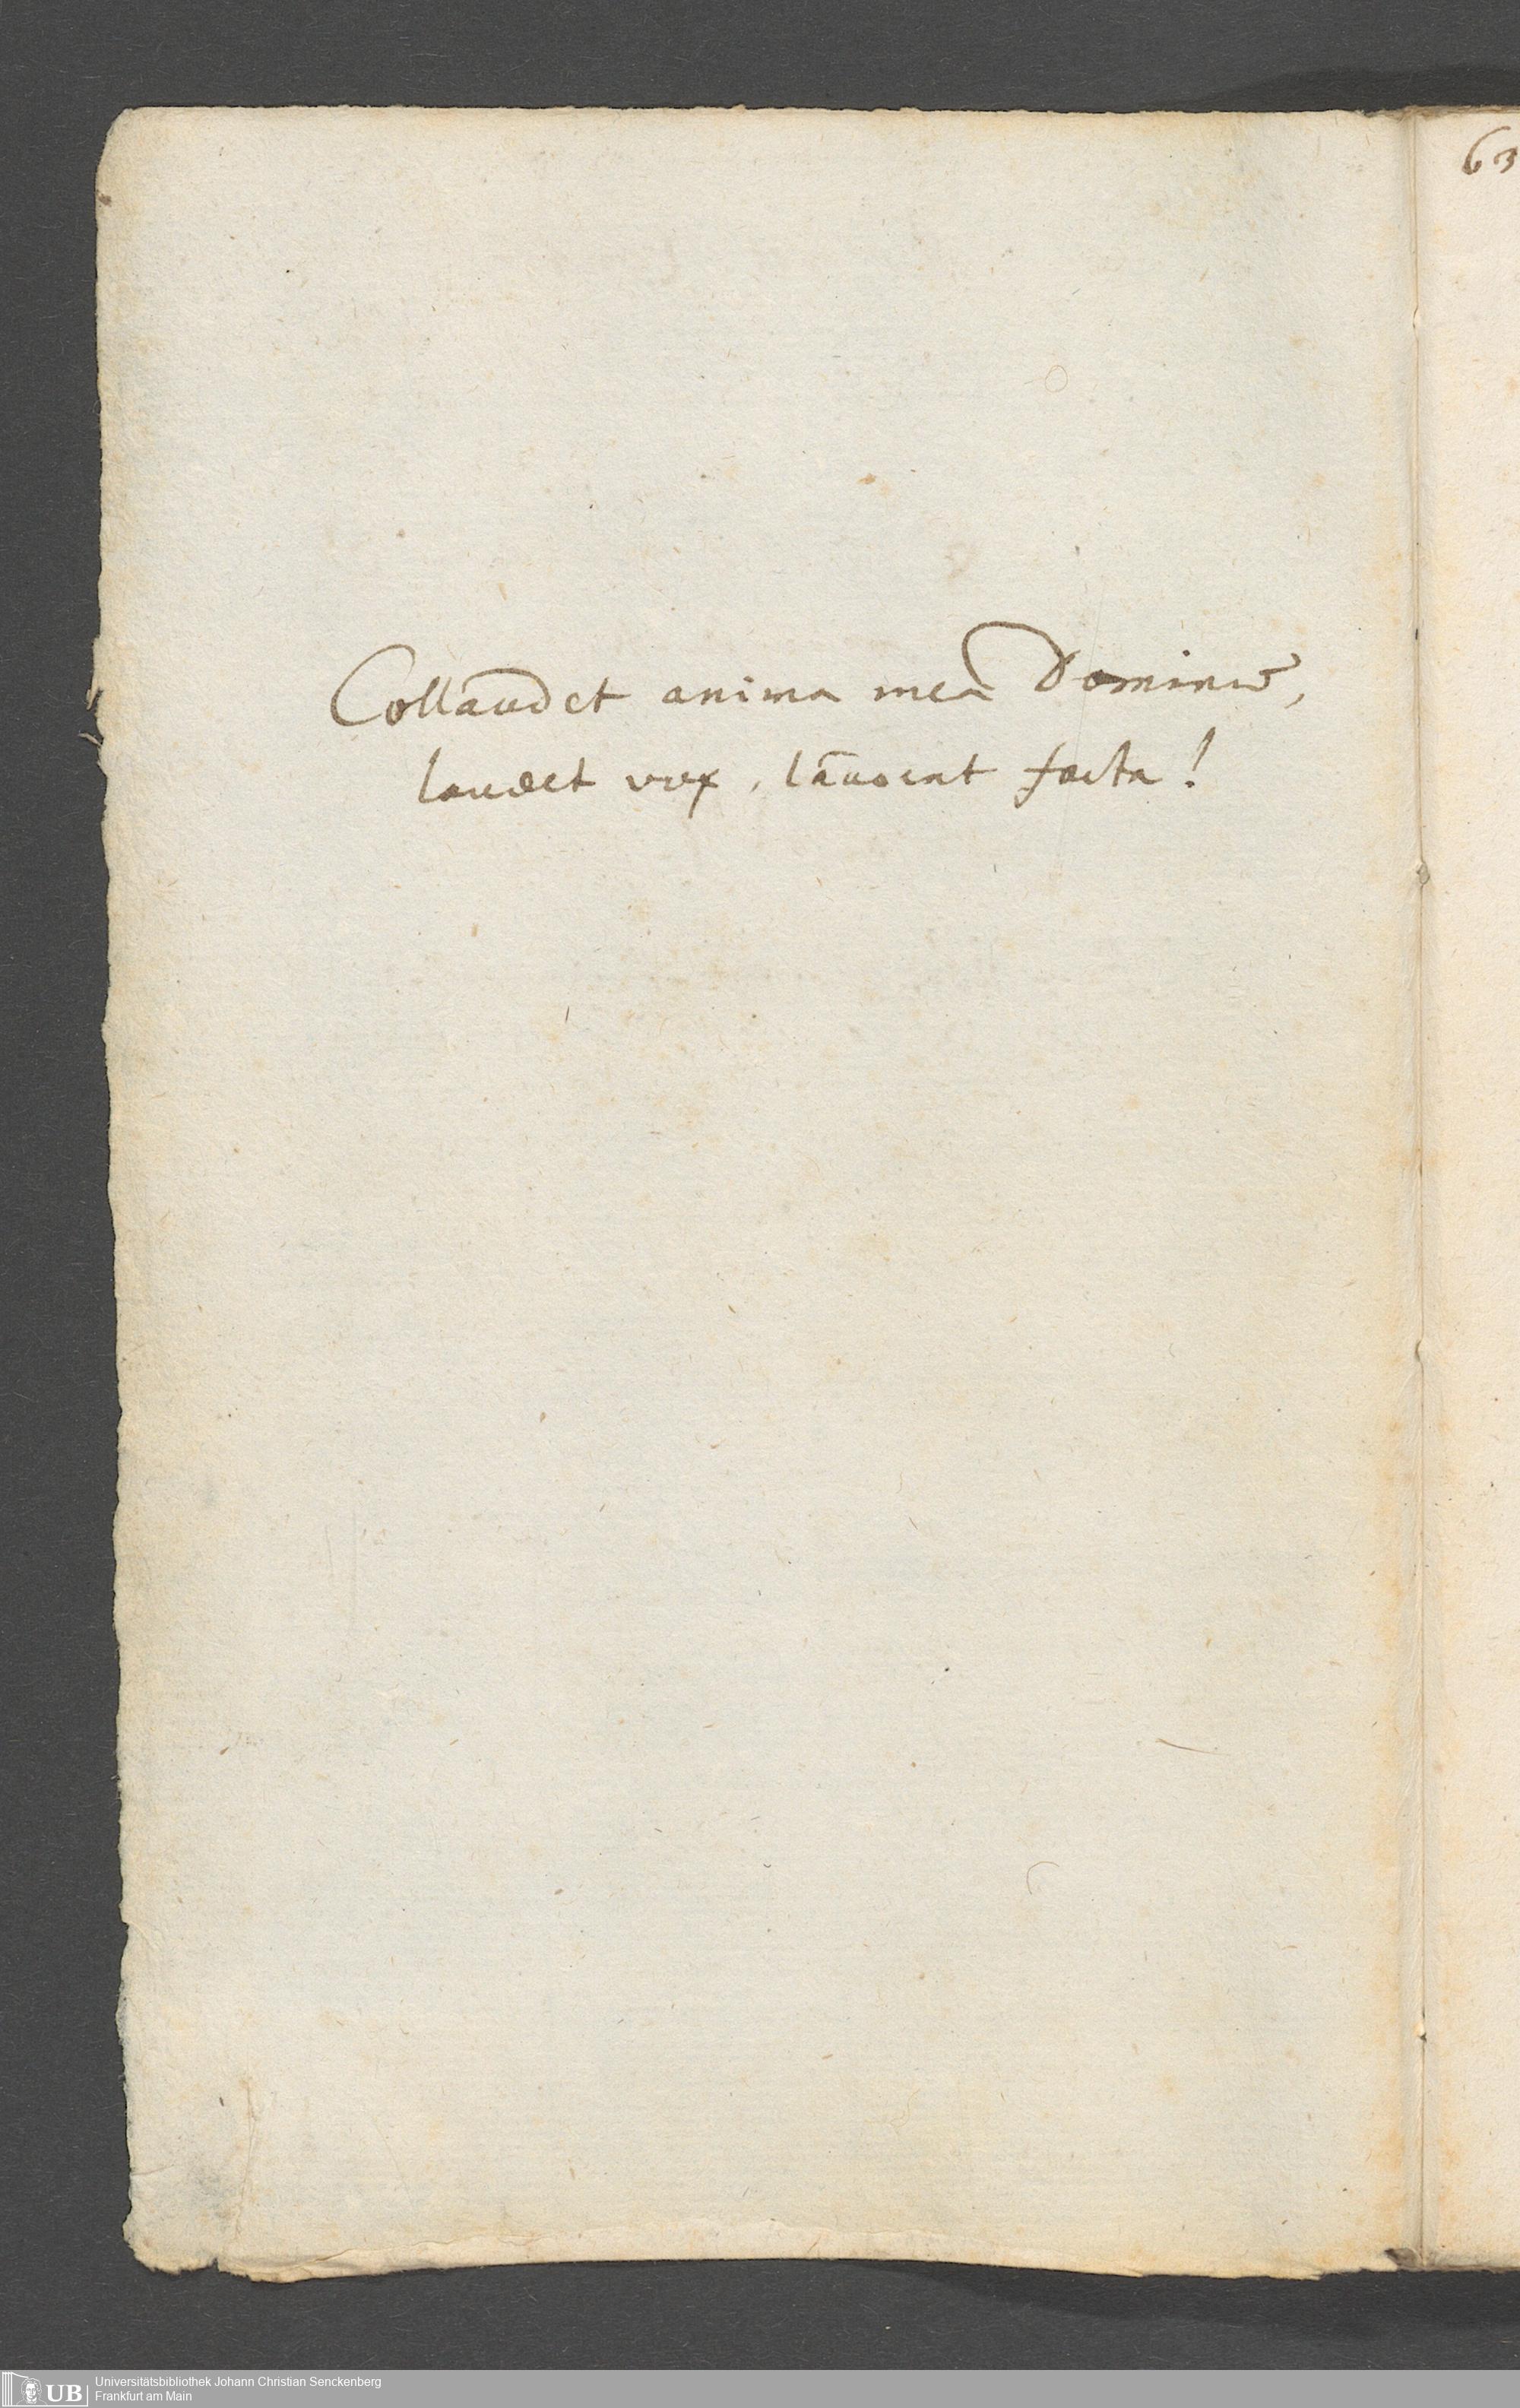 63
Collaudet anima mea Dominū,
laudet vox, laudent facta!
UB
Universitätsbibliothek Johann Christian Senckenberg
Frankfurt am Main